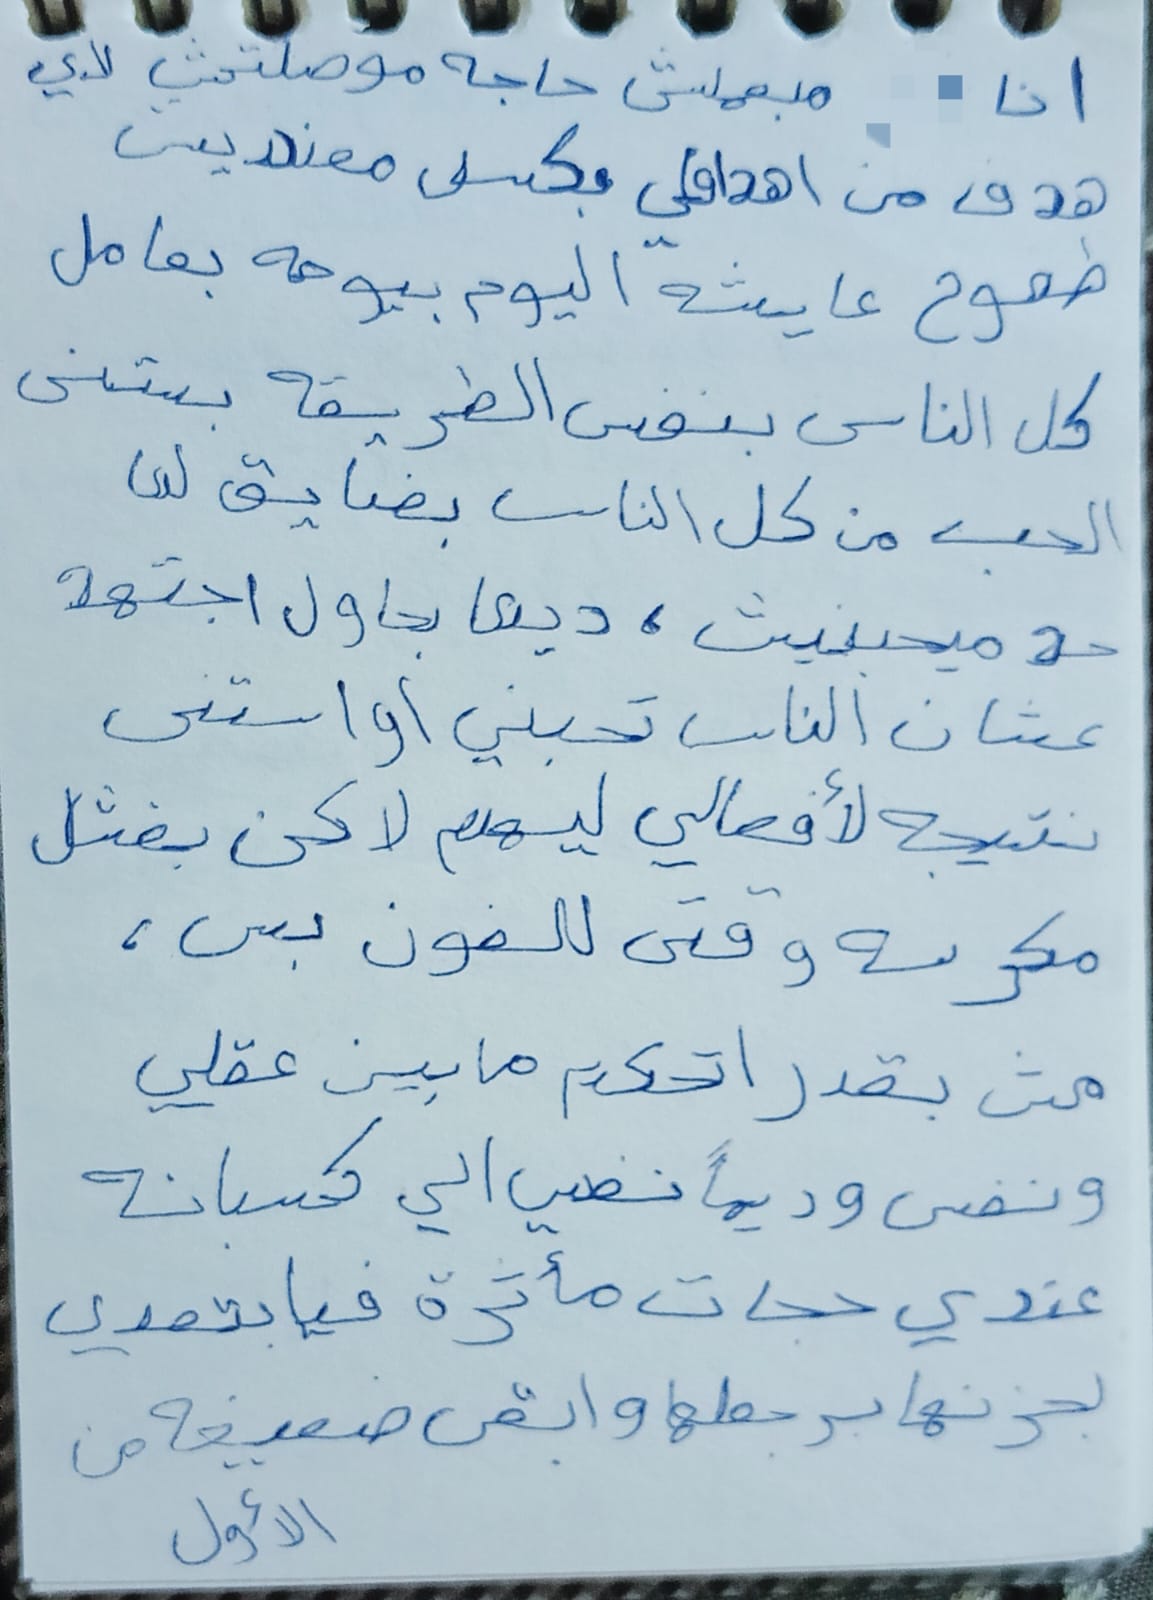 انا مبعملش حاجه موصلتنيش لاي
هدف من اهدافي بكسل معنديش
طموح عايشه اليوم بيومه بعامل
كل الناس بنفس الطريقه بستنى
الحب من كل الناس بضايق لما
حد ميحبنيش ، ديما بحاول اجتهد
عشان الناس تحبني أو استنى
نتيجه لأفعالي ليهم لاكن بفشل
مكرسه وقتى للفون بس ،
مش بقدر اتحكم مابين عقلي
ونفسى وديماً نفسي الي كسبانه
عندي حجات مأثرة فيا بتعدي
لحزنها برجعلها وابقى ضعيفه من
الأول